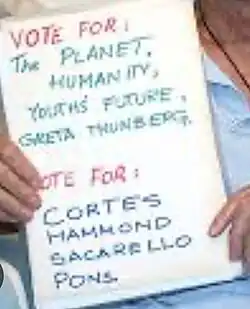 VOTE FOR:
The PLANET,
HUMANITY,
YOUTH'S FUTURE,
GRETA THUNBERG.
VOTE FOR:
CORTES
HAMMOND
SACARELLO
PONS